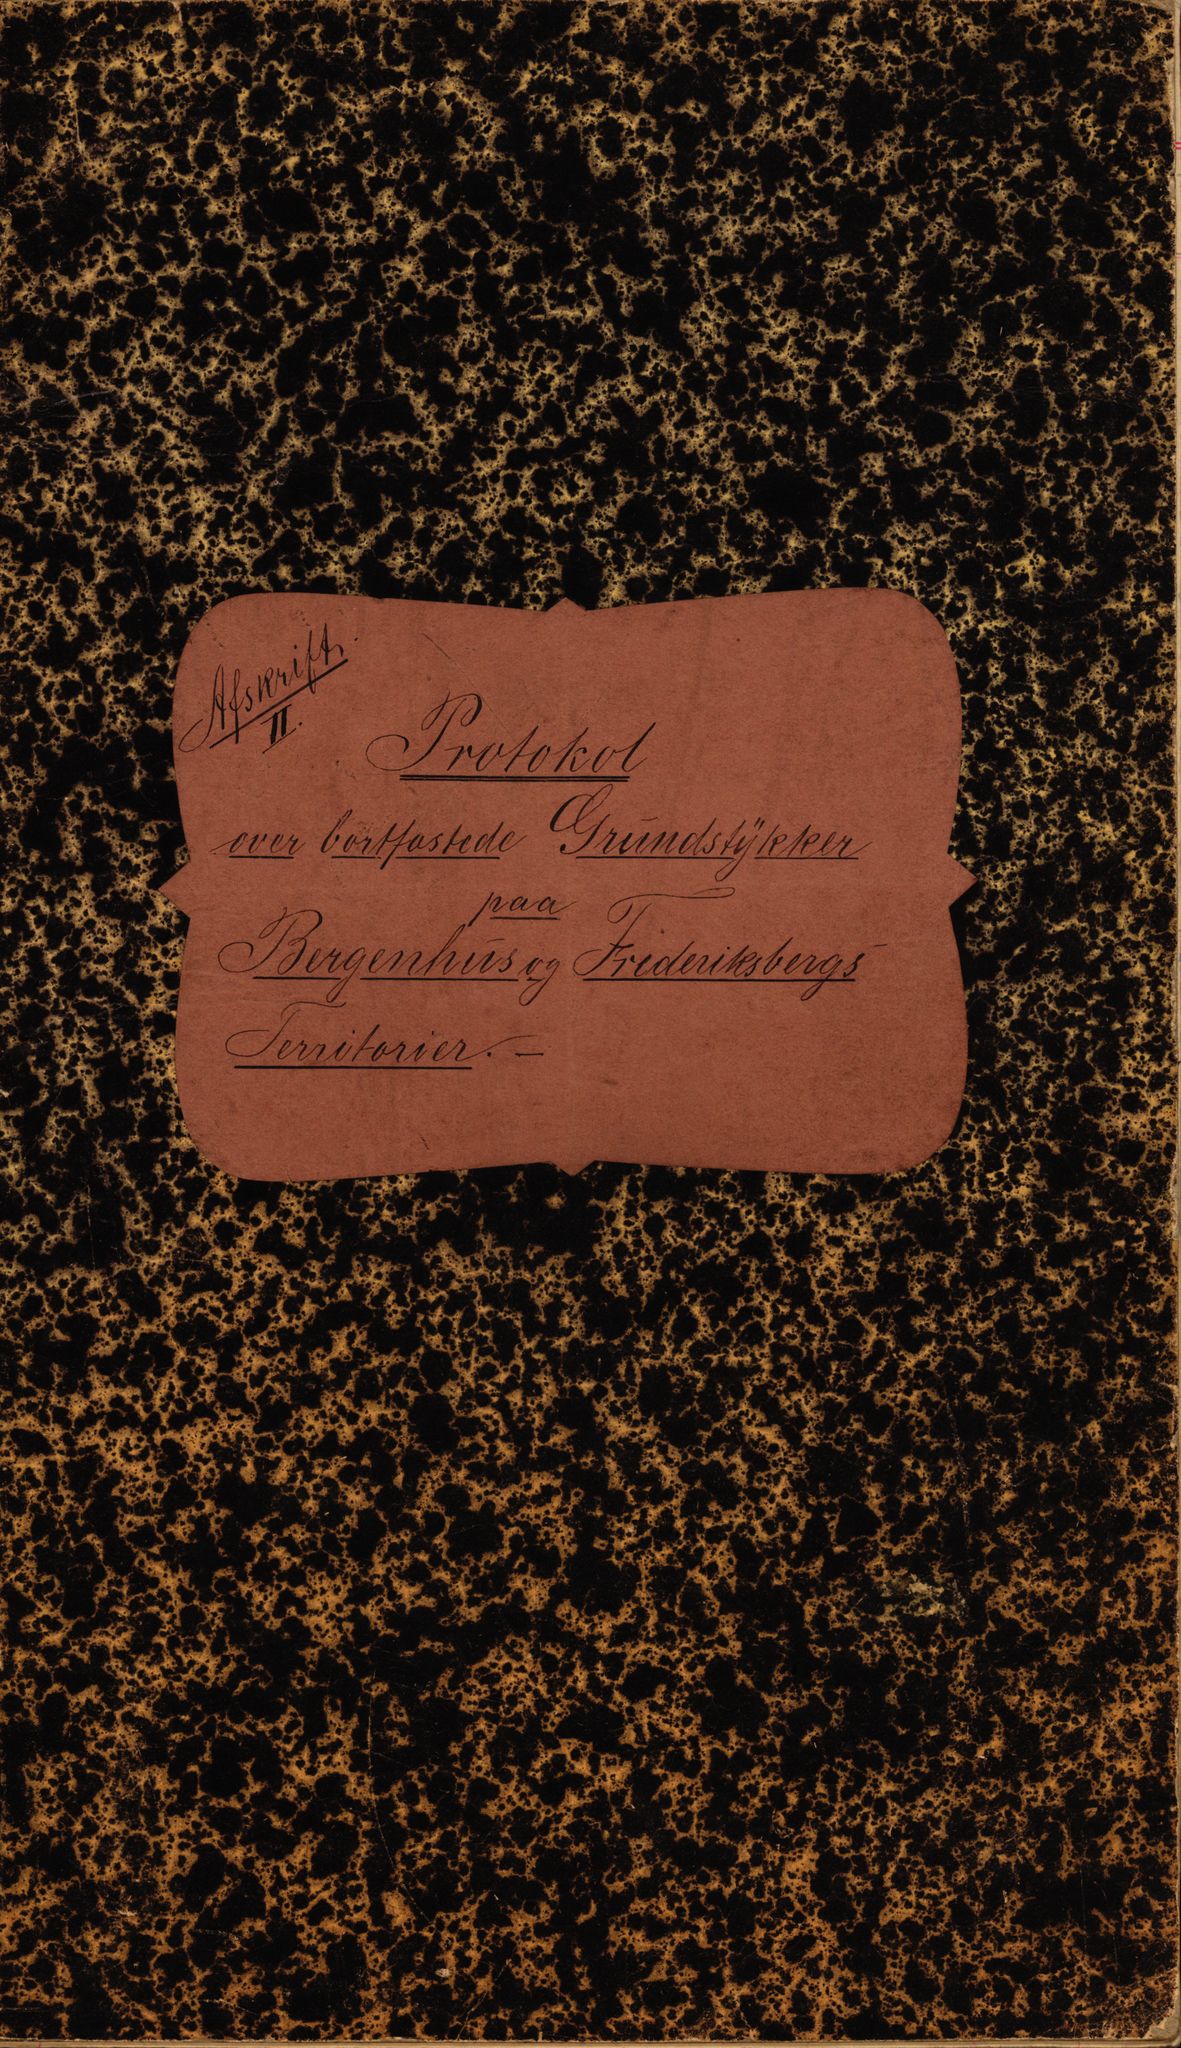 Afskrift.
II.
Protokol
over bortfæstede Grundstykker
paa
Bergenhus og Frederiksbergs
Territorier. —